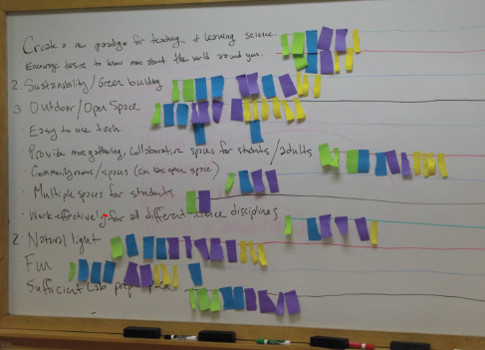 Create a new paradigm for teaching & learning science
Encourage desire to know more about the world around you.
2. Sustainability/Green building
3 Outdoor/Open Space
· Easy to use tech
Provide more gathering, collaborative spaces for students/adults
Community rooms/spaces (can be open space)
· Multiple spaces for students
· Work effectively for all different science disciplines
2. Natural light
· Fun
Sufficient Lab prep space